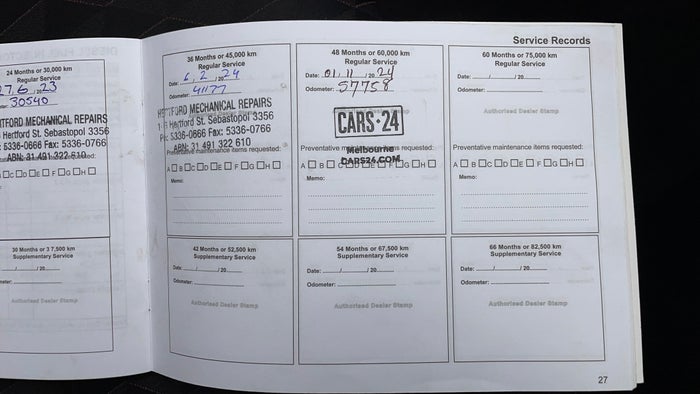 Service Records
24 Months or 30,000 km
Regular Service
27.6 /20 23
30540
HERTFORD MECHANICAL REPAIRS
Hertford St. Sebastopol 3356
5336-0666 Fax: 5336-0766
ABN: 31 491 322 610
items requested:
B C D E F G H
30 Months or 37,500 km
Supplementary Service
/ /20
Authorised Dealer Stamp
36 Months or 45,000 km
Regular Service
Date: 6 / 2 /20 24
Odometer: 41177
HERTFORD MECHANICAL REPAIRS
Hertford St. Sebastopol 3356
Ph: 5336-0666 Fax: 5336-0766
ABN: 31 491 322 610
Preventative maintenance items requested:
A B C D E F G H
Memo:
42 Months or 52,500 km
Supplementary Service
Date: / /20
Odometer:
Authorised Dealer Stamp
48 Months or 60,000 km
Regular Service
Date: 01 / 11 /20 24
Odometer: 57758
CARS·24
Melbourne
CARS24.COM
Preventative maintenance items requested:
A B C D E F G H
Memo:
54 Months or 67,500 km
Supplementary Service
Date: / /20
Odometer:
Authorised Dealer Stamp
60 Months or 75,000 km
Regular Service
Date: / /20
Odometer:
Authorised Dealer Stamp
Preventative maintenance items requested:
A B C D E F G H
Memo:
66 Months or 82,500 km
Supplementary Service
Date: / /20
Odometer:
Authorised Dealer Stamp
27